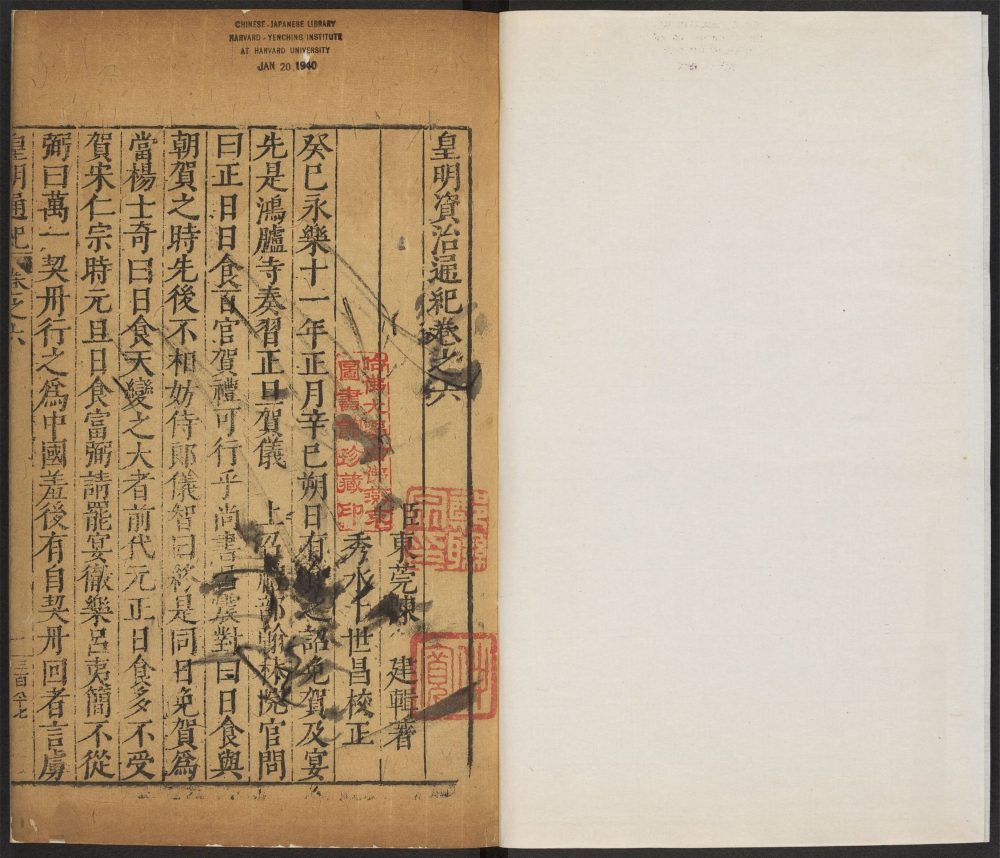 CHINESE-JAPANESE LIBRARY
HARVARD-YENCHING INSTITUTE
AT HARVARD UNIVERSITY
JAN 20 1940
皇明資治通紀卷之六
臣東莞陳 建輯著
秀水卜世昌校正
癸巳永樂十一年正月辛巳朔日有食之詔免賀及宴
先是鴻臚寺奏習正旦賀儀 上召禮部翰林院官問
曰正旦日食百官賀禮可行乎尚書呂震對曰日食與
朝賀之時先後不相妨侍郎儀智曰終是同日免賀爲
當楊士奇曰日食天變之大者前代元正日食多不受
賀宋仁宗時元旦日食富弼請罷宴徹樂呂夷簡不從
弼曰萬一契丹行之爲中國羞後有自契丹回者言虜
皇明通紀 卷之六
三百八十七
哈佛大學哈佛燕京
圖書館珍藏印